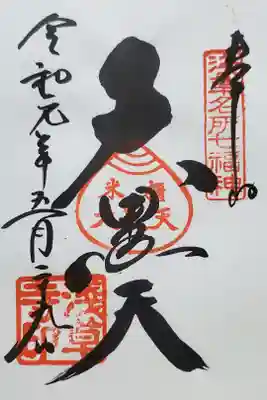 奉拝
浅草名所七福神
大黒天
令和元年五月二十九日
浅草